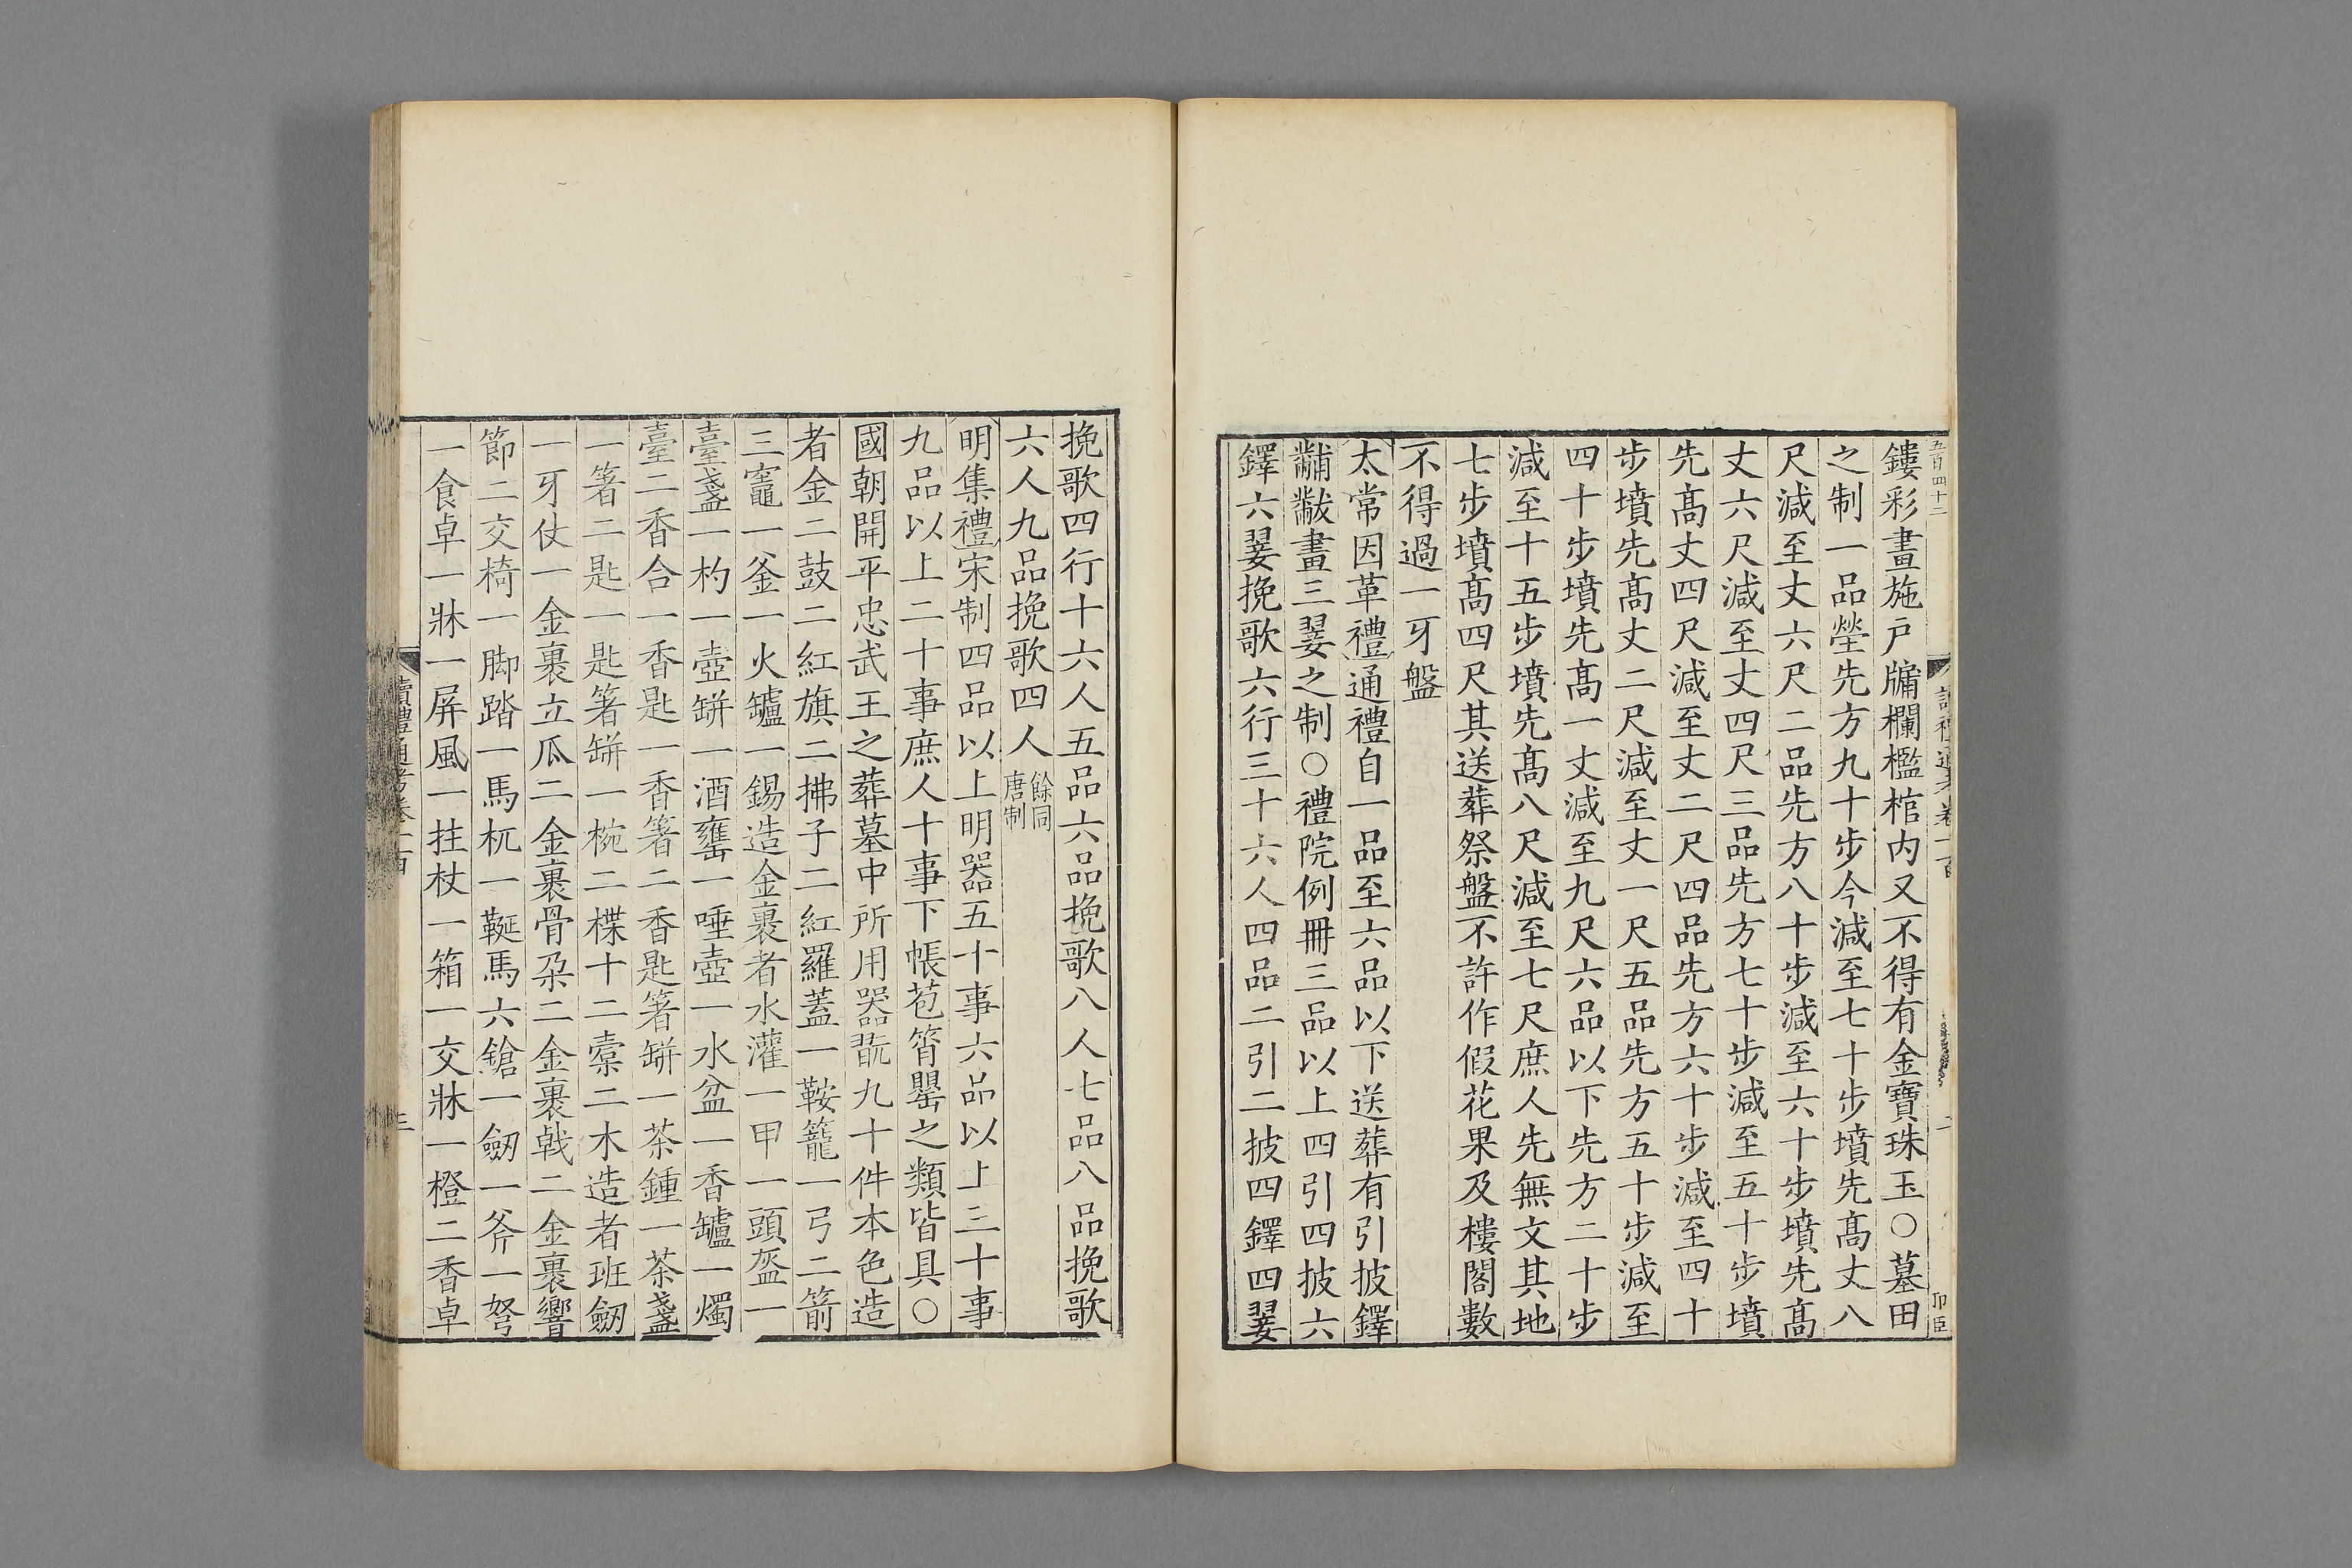 五百四十二
讀禮通考卷一百
二
鏤彩畫施戶牖欄檻棺内又不得有金寶珠玉○墓田
之制一品塋先方九十步今減至七十步墳先髙丈八
尺減至丈六尺二品先方八十步減至六十步墳先髙
丈六尺減至丈四尺三品先方七十步減至五十步墳
先髙丈四尺減至丈二尺四品先方六十步減至四十
步墳先髙丈二尺減至丈一尺五品先方五十步減至
四十步墳先髙一丈減至九尺六品以下先方二十步
減至十五步墳先髙八尺減至七尺庶人先無文其地
七步墳髙四尺其送葬祭盤不許作假花果及樓閣數
不得過一牙盤
太常因革禮通禮自一品至六品以下送葬有引披鐸
黼黻畫三翣之制○禮院例冊三品以上四引四披六
鐸六翣挽歌六行三十六人四品二引二披四鐸四翣
挽歌四行十六人五品六品挽歌八人七品八品挽歌
六人九品挽歌四人餘同唐制
明集禮宋制四品以上明器五十事六品以上三十事
九品以上二十事庶人十事下帳苞筲罌之類皆具○
國朝開平忠武王之葬墓中所用器翫九十件本色造
者金二鼓二紅旗二拂子二紅羅蓋一鞍籠一弓二箭
三竈一釜一火罏一錫造金裹者水灌一甲一頭盔一
臺盞一杓一壺缾一酒罋一唾壺一水盆一香罏一燭
臺二香合一香匙一香箸二香匙箸缾一茶鍾一茶盞
一箸二匙一匙箸缾一椀二楪十二櫜二木造者班劒
一牙仗一金裹立瓜二金裹骨朶二金裹戟二金裹響
節二交椅一脚踏一馬杌一鞓馬六鎗一劒一斧一弩
一食卓一牀一屏風一拄杖一箱一交牀一橙二香卓
讀禮通考卷一百
三